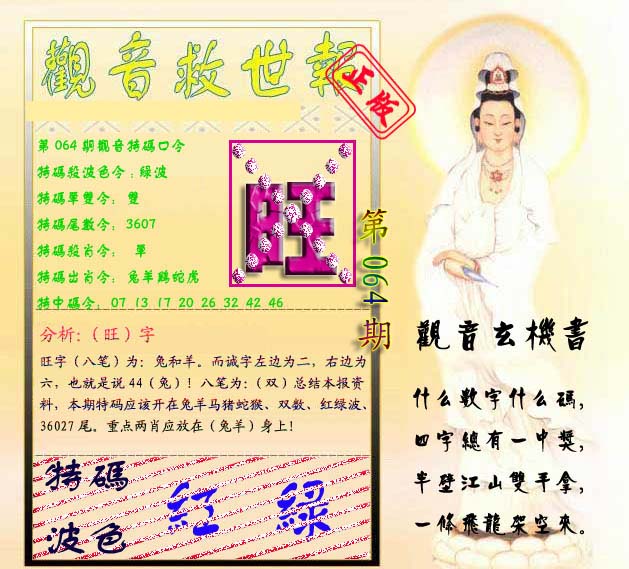 觀音救世報
正版
第064期觀音特碼口令
特碼殺波色令:綠波
特碼單雙令: 雙
特碼尾數令: 3607
特碼殺肖令: 單
特碼出肖令: 兔羊鷄蛇虎
特中碼令: 07 13 17 20 26 32 42 46
旺
第064期
分析:(旺)字
旺字(八笔)为:兔和羊。而诚字左边为二,右边为
六,也就是说44(兔)!八笔为:(双)总结本报资
料,本期特码应该开在兔羊马猪蛇猴、双数、红绿波、
36027尾。重点两肖应放在(兔羊)身上!
特碼
波色
紅 綠
觀音玄機書
什么數字什么碼,
四字總有一中獎,
半壁江山雙手拿,
一條飛龍架空來。